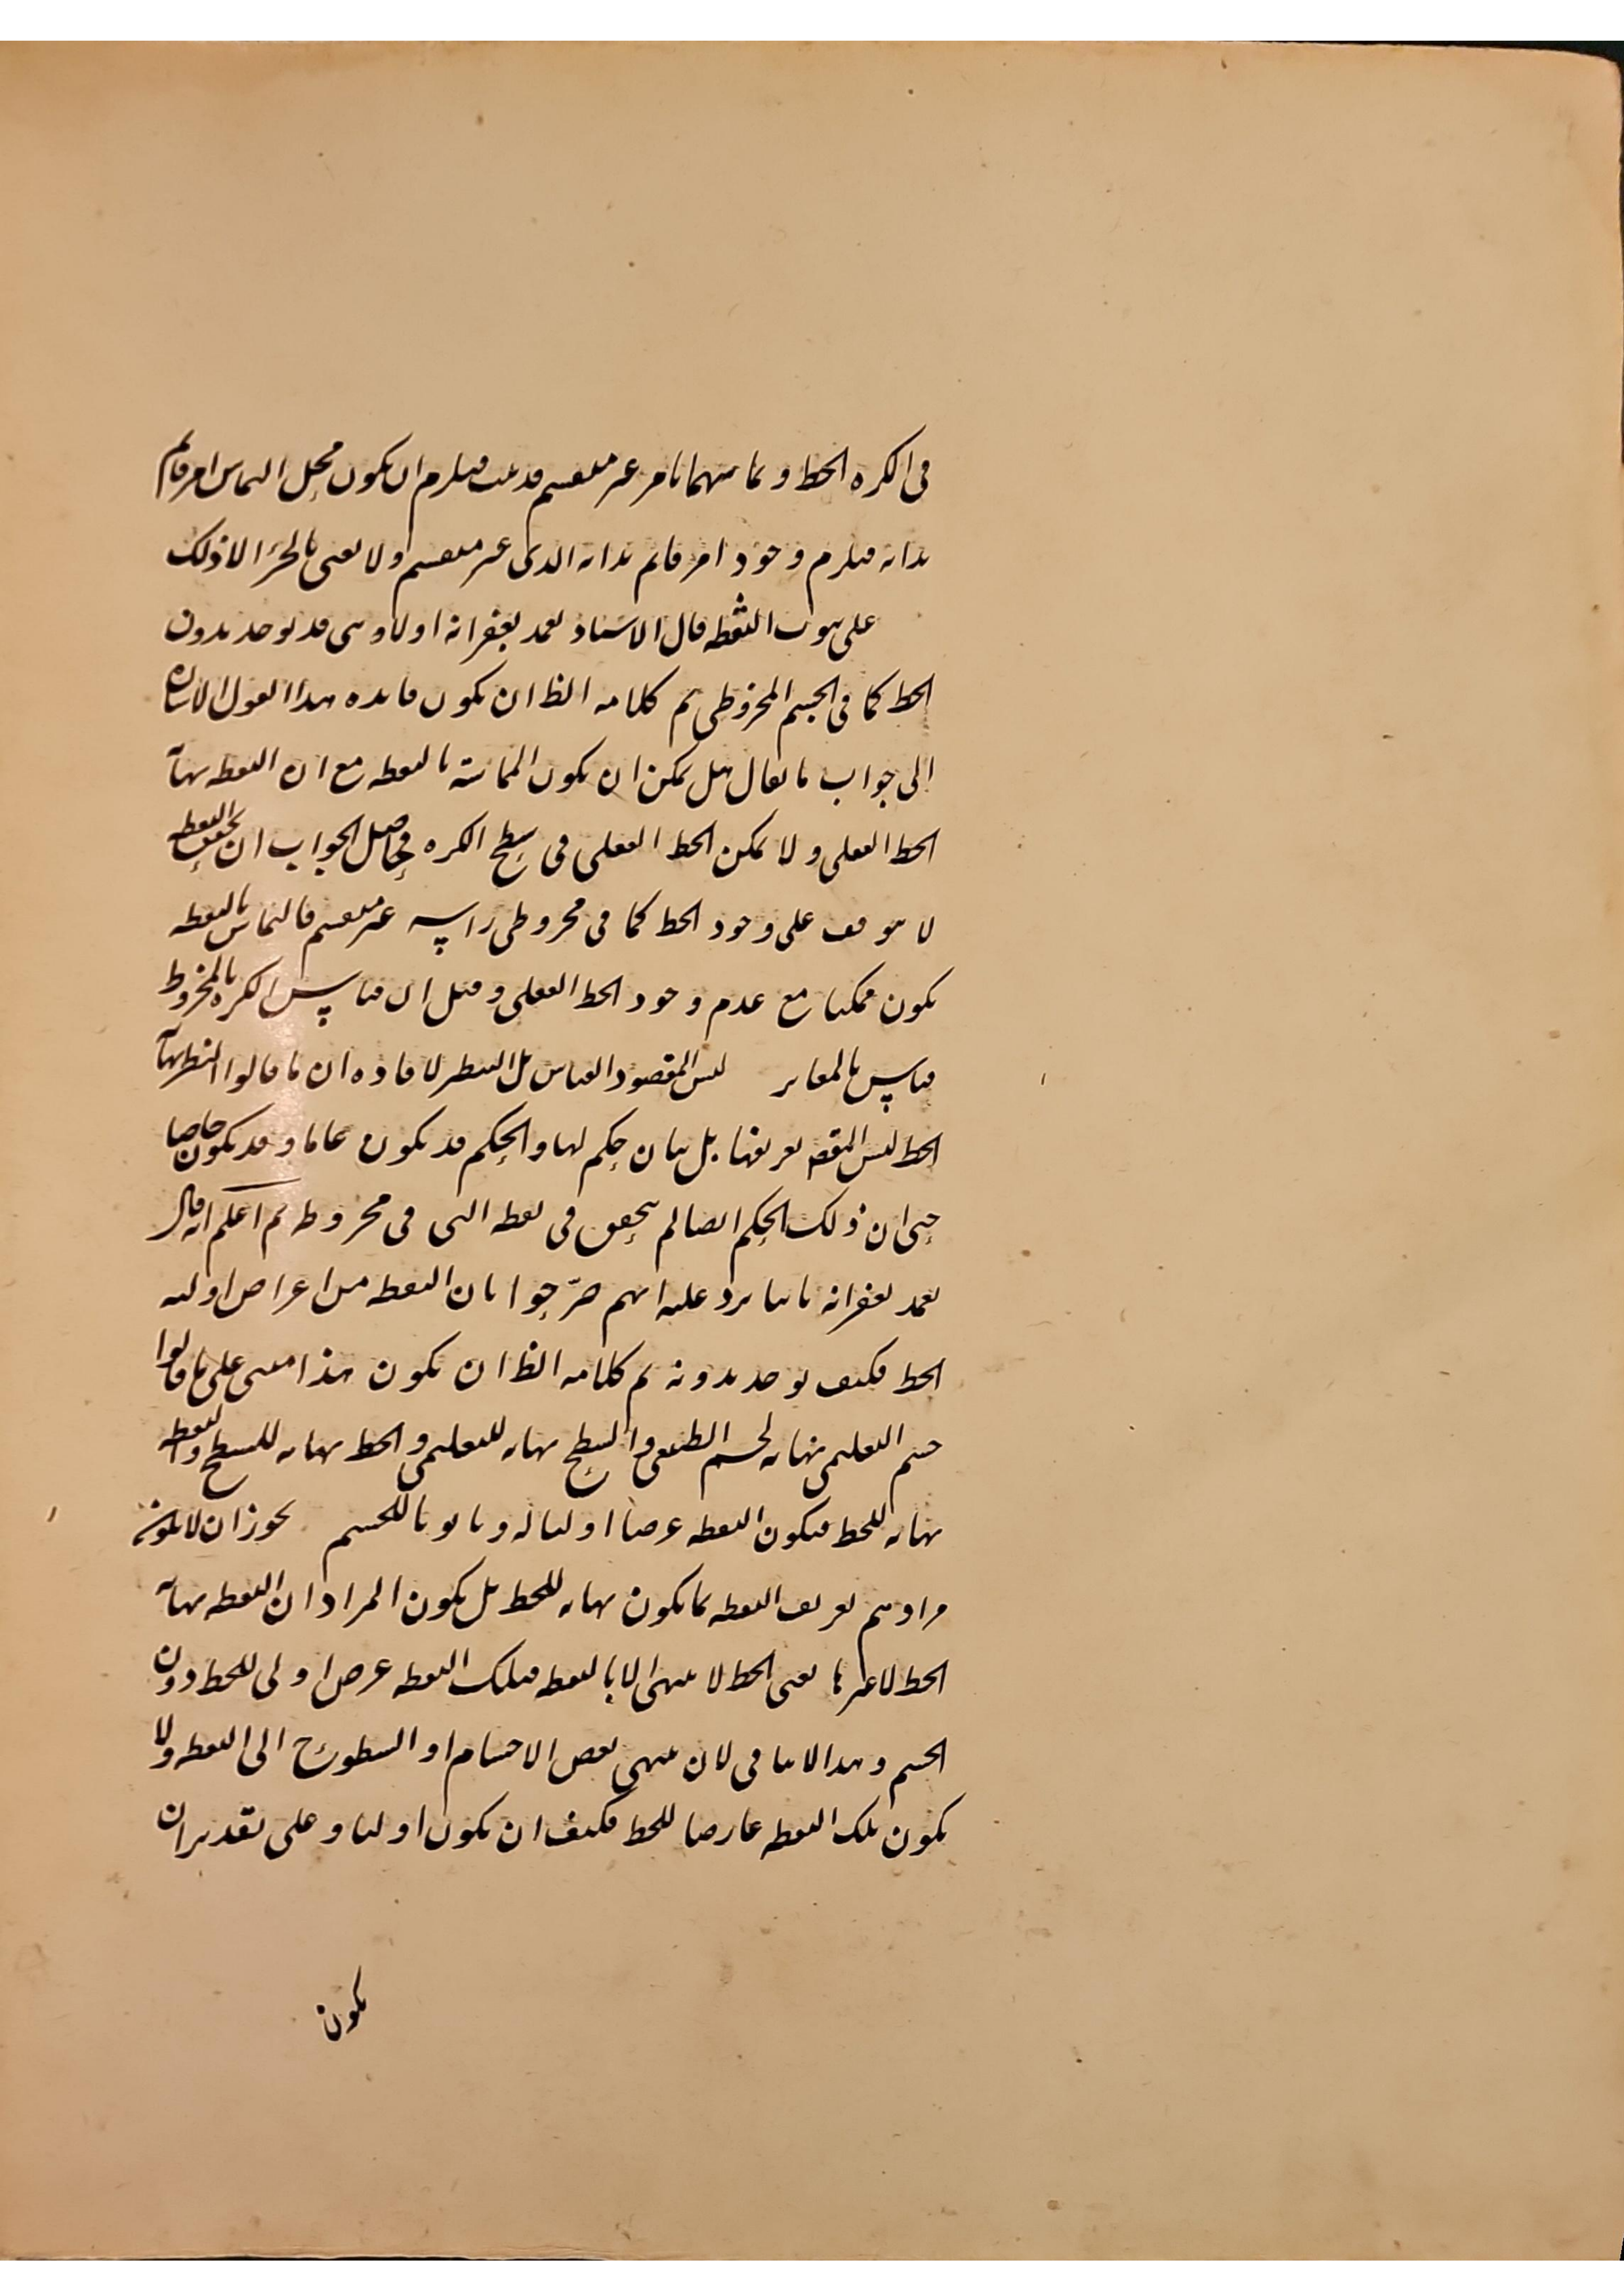 فى الكره الخط و تماسهما بامر غير منقسم قد ثبت فيلزم ان يكون محل التماس امر قائم
بذاته فيلزم وجود امر قائم بذاته الذى غير منقسم ولا نعنى بالجزء الا ذلك
على ثبوت النقطه قال الاستاد تغمد بغفرانه اولا وهى قد توجد بدون
الخط كما فى الجسم المخروطى تم كلامه الظ ان يكون فايده هذا القول الاشاره
الى جواب ما يقال هل يمكن ان يكون المماسة بالنقطه مع ان النقطه نهاية
الخط الفعلى و لا يمكن الخط الفعلى فى سطح الكره فحاصل الجواب ان تحقق النقطه
لا يتوقف على وجود الخط كما فى مخروطى راسه غير منقسم فالتماس بالنقطه
يكون ممكنا مع عدم وجود الخط الفعلى و قيل ان قياس الكره بالمخروط
قياس بالمغاير ليس المقصود القياس بل التنظير لافاده ان ما قالوا النقطه نهاية
الخط ليس المقصـ تعريفها بل بيان حكم لها والحكم قد يكون عاما و قد يكون خاصا
حتى ان ذلك الحكم ايضا لم يتحقق فى نقطه التى فى مخروط ثم اعلم انه قال
تغمد بغفرانه ثانيا يرد عليه انهم صرّحوا بان النقطه من اعراض اوليه
الخط فكيف توجد بدونه تم كلامه الظ ان يكون هذا مبنى على ما قالوا
جسم التعليمى نهايه لجسم الطبيعى والسطح نهايه للتعليمى و الخط نهايه للسطح والنقطه
نهايه للخط فيكون النقطه عرضا اوليا له و ثانويا للجسم يجوز ان لا يكون
مرادهم تعريف النقطه بما يكون نهايه للخط بل يكون المراد ان النقطه نهاية
الخط لا غيرها يعنى الخط لا ينتهى الا بالنقطه فتلك النقطه عرض اولى للخط دون
الجسم و هذا لا ينافى لان ينتهى بعض الاجسام او السطوح الى النقطه ولا
يكون تلك النقطه عارضا للخط فكيف ان يكون اوليا و على تقدير ان
يكون